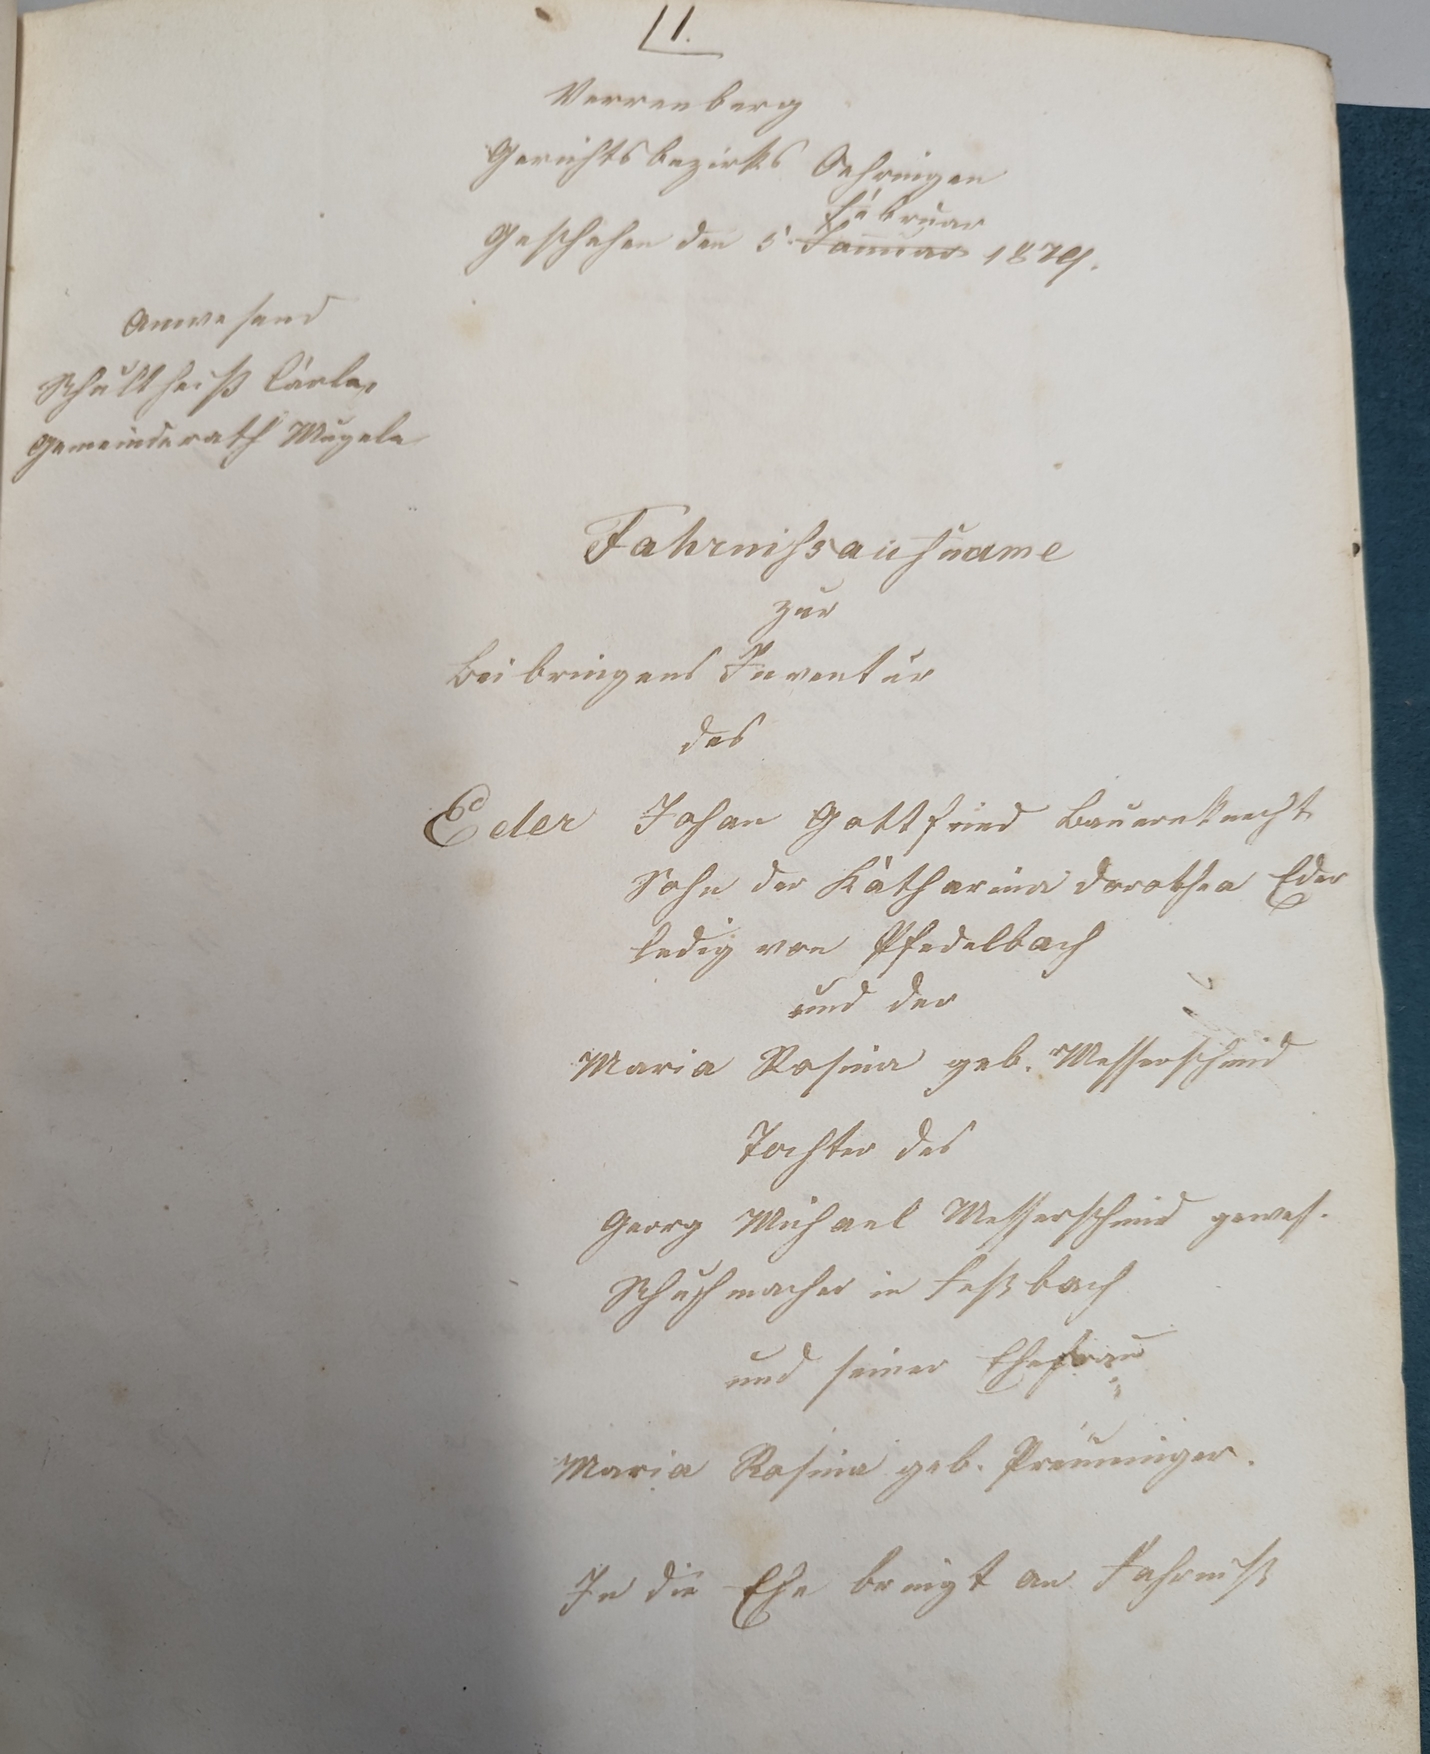 11.
Verrenberg
Gerichtsbezirks Oehringen
Februar
Geschehen den 5. Januar 1879.
Anwesend
Schultheiß
Gemeinderath Mugele
Fahrnissaufname
zur
Beibringens Inventur
des
Eder Johan Gottfried Bauernknecht
Sohn der Katharina Dorothea Eder
ledig von Pfedelbach
und der
Maria Rosina geb. Messerschmid
Tochter des
Georg Michael Messerschmid gewes.
Schuhmacher in Feßbach
und seiner Ehefrau
Maria Rosina geb. Preuninger.
In die Ehe bringt an Fahrniß